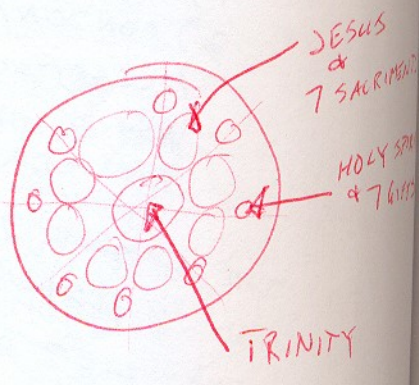 JESUS
&
7 SACRIMENT
HOLY SPIR
& 7 GIFTS
TRINITY